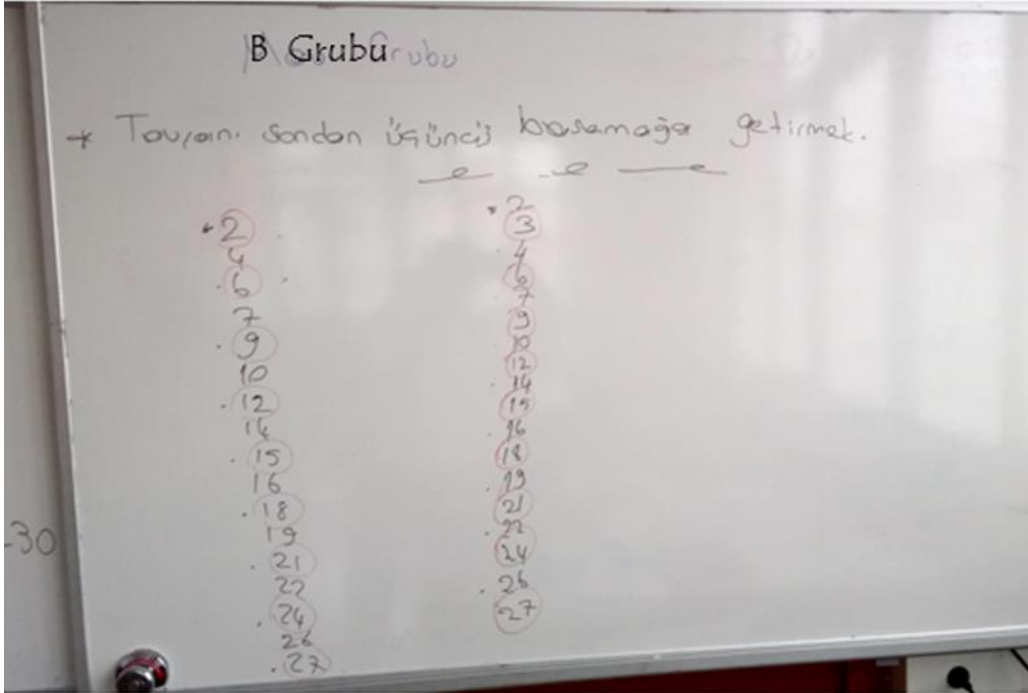 B Grubu
* Tavşanı sondan üçüncü basamağa getirmek.
2
4
6
7
9
10
12
14
15
16
18
19
21
22
24
26
27
2
3
4
6
7
9
10
12
14
15
16
18
19
21
22
24
26
27
-30